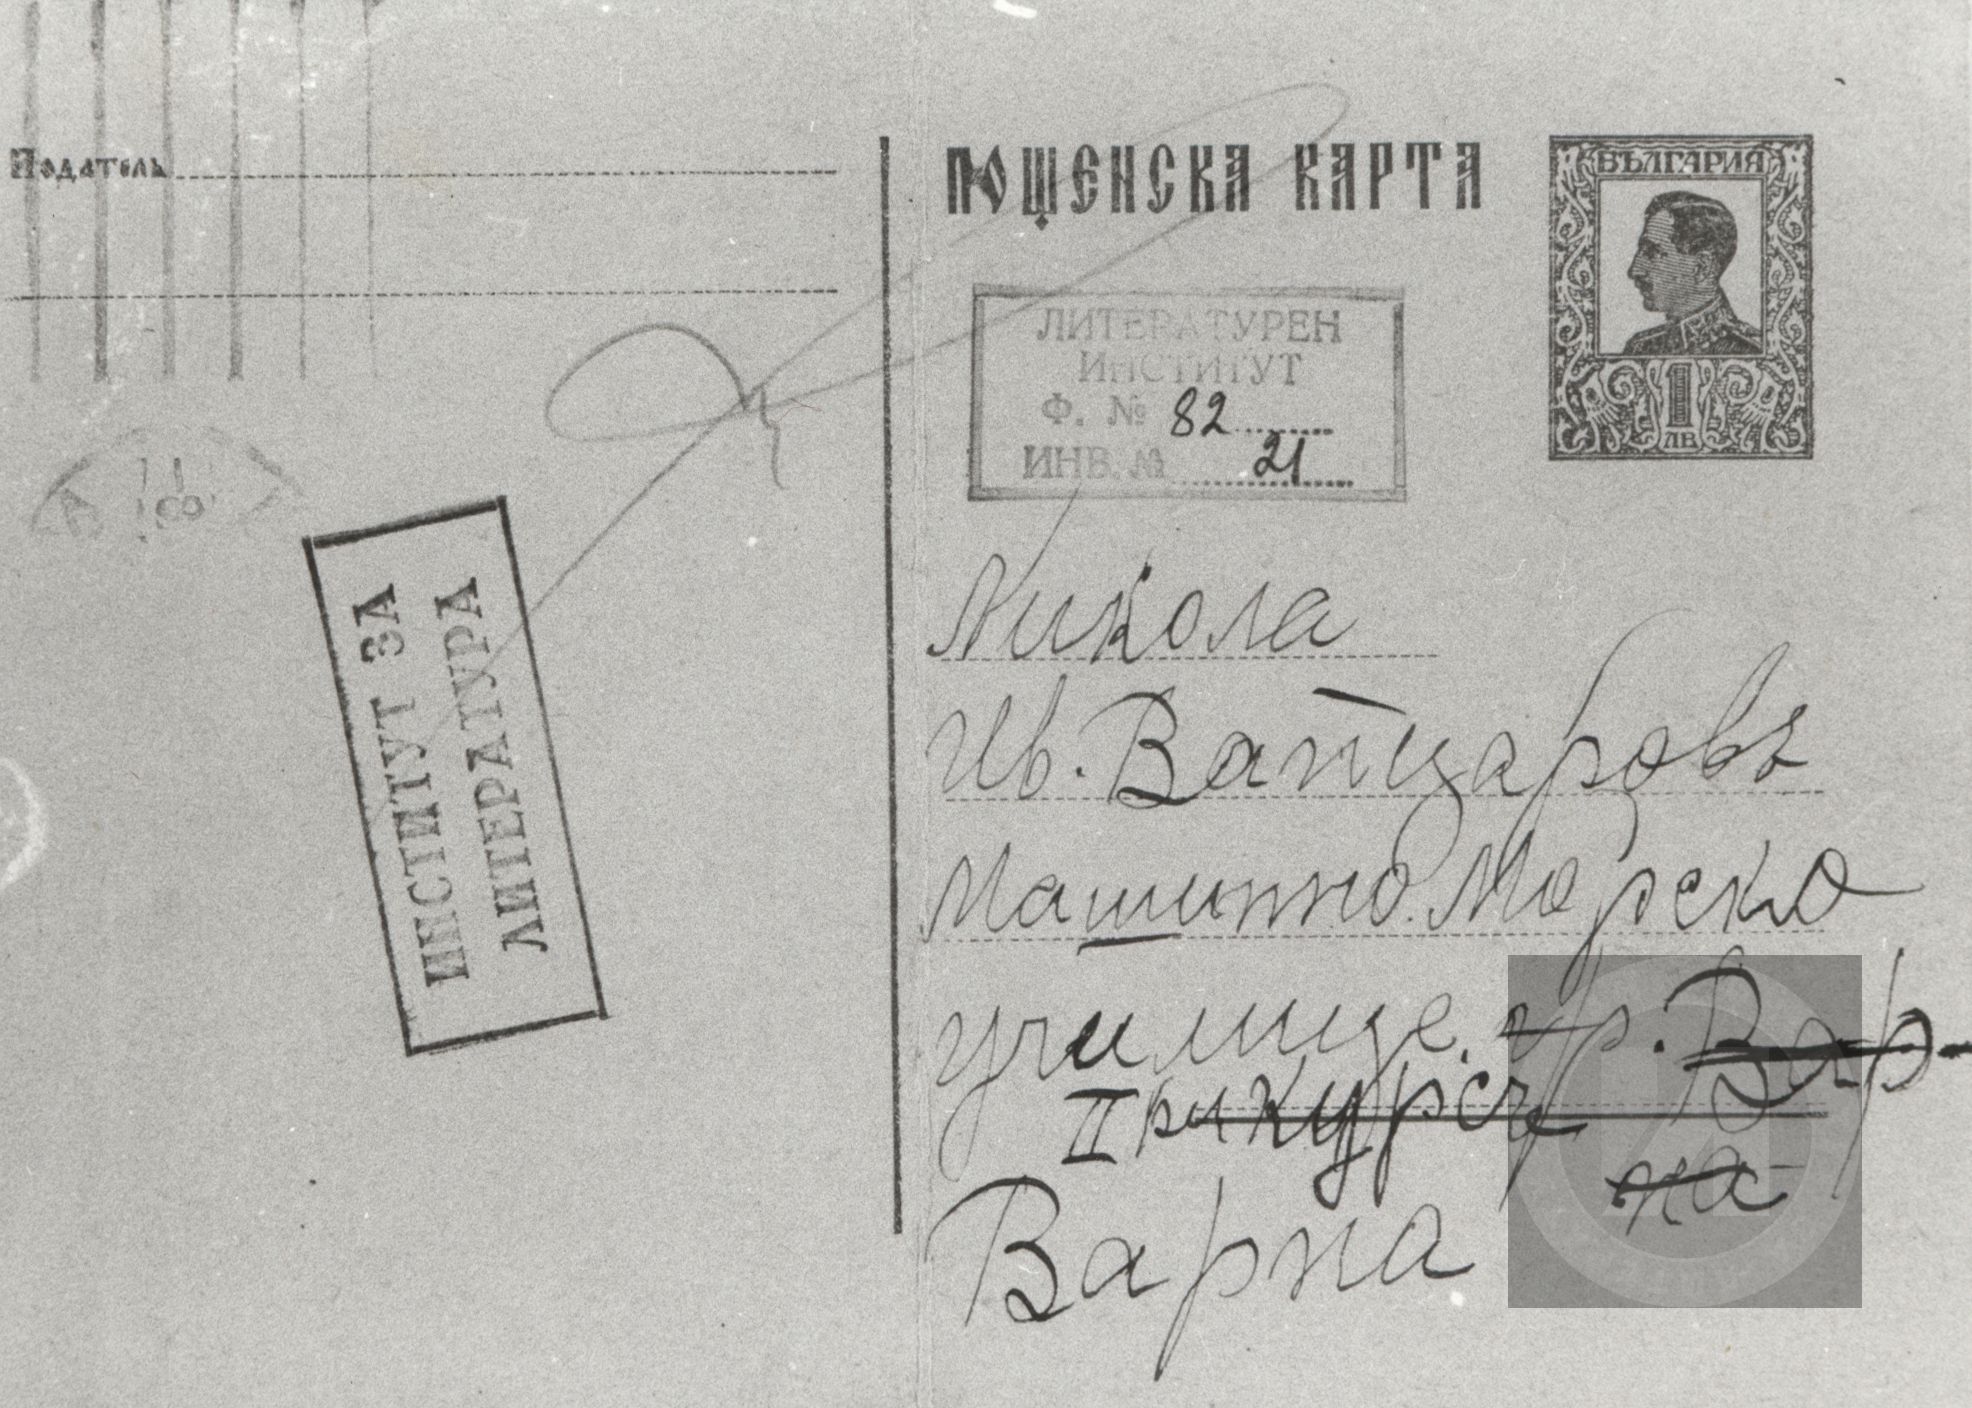 Податель
ПОЩЕНСКА КАРТА
БЪЛГАРИЯ
1
ЛВ
ЛИТЕРАТУРЕН
ИНСТИТУТ
Ф. № 82
ИНВ. № 21
ИНСТИТУТ ЗА
ЛИТЕРАТУРА
Никола
Ив. Вапцаровъ
Машинно. Морско
училище. гр. Вар-
на
II
Варна